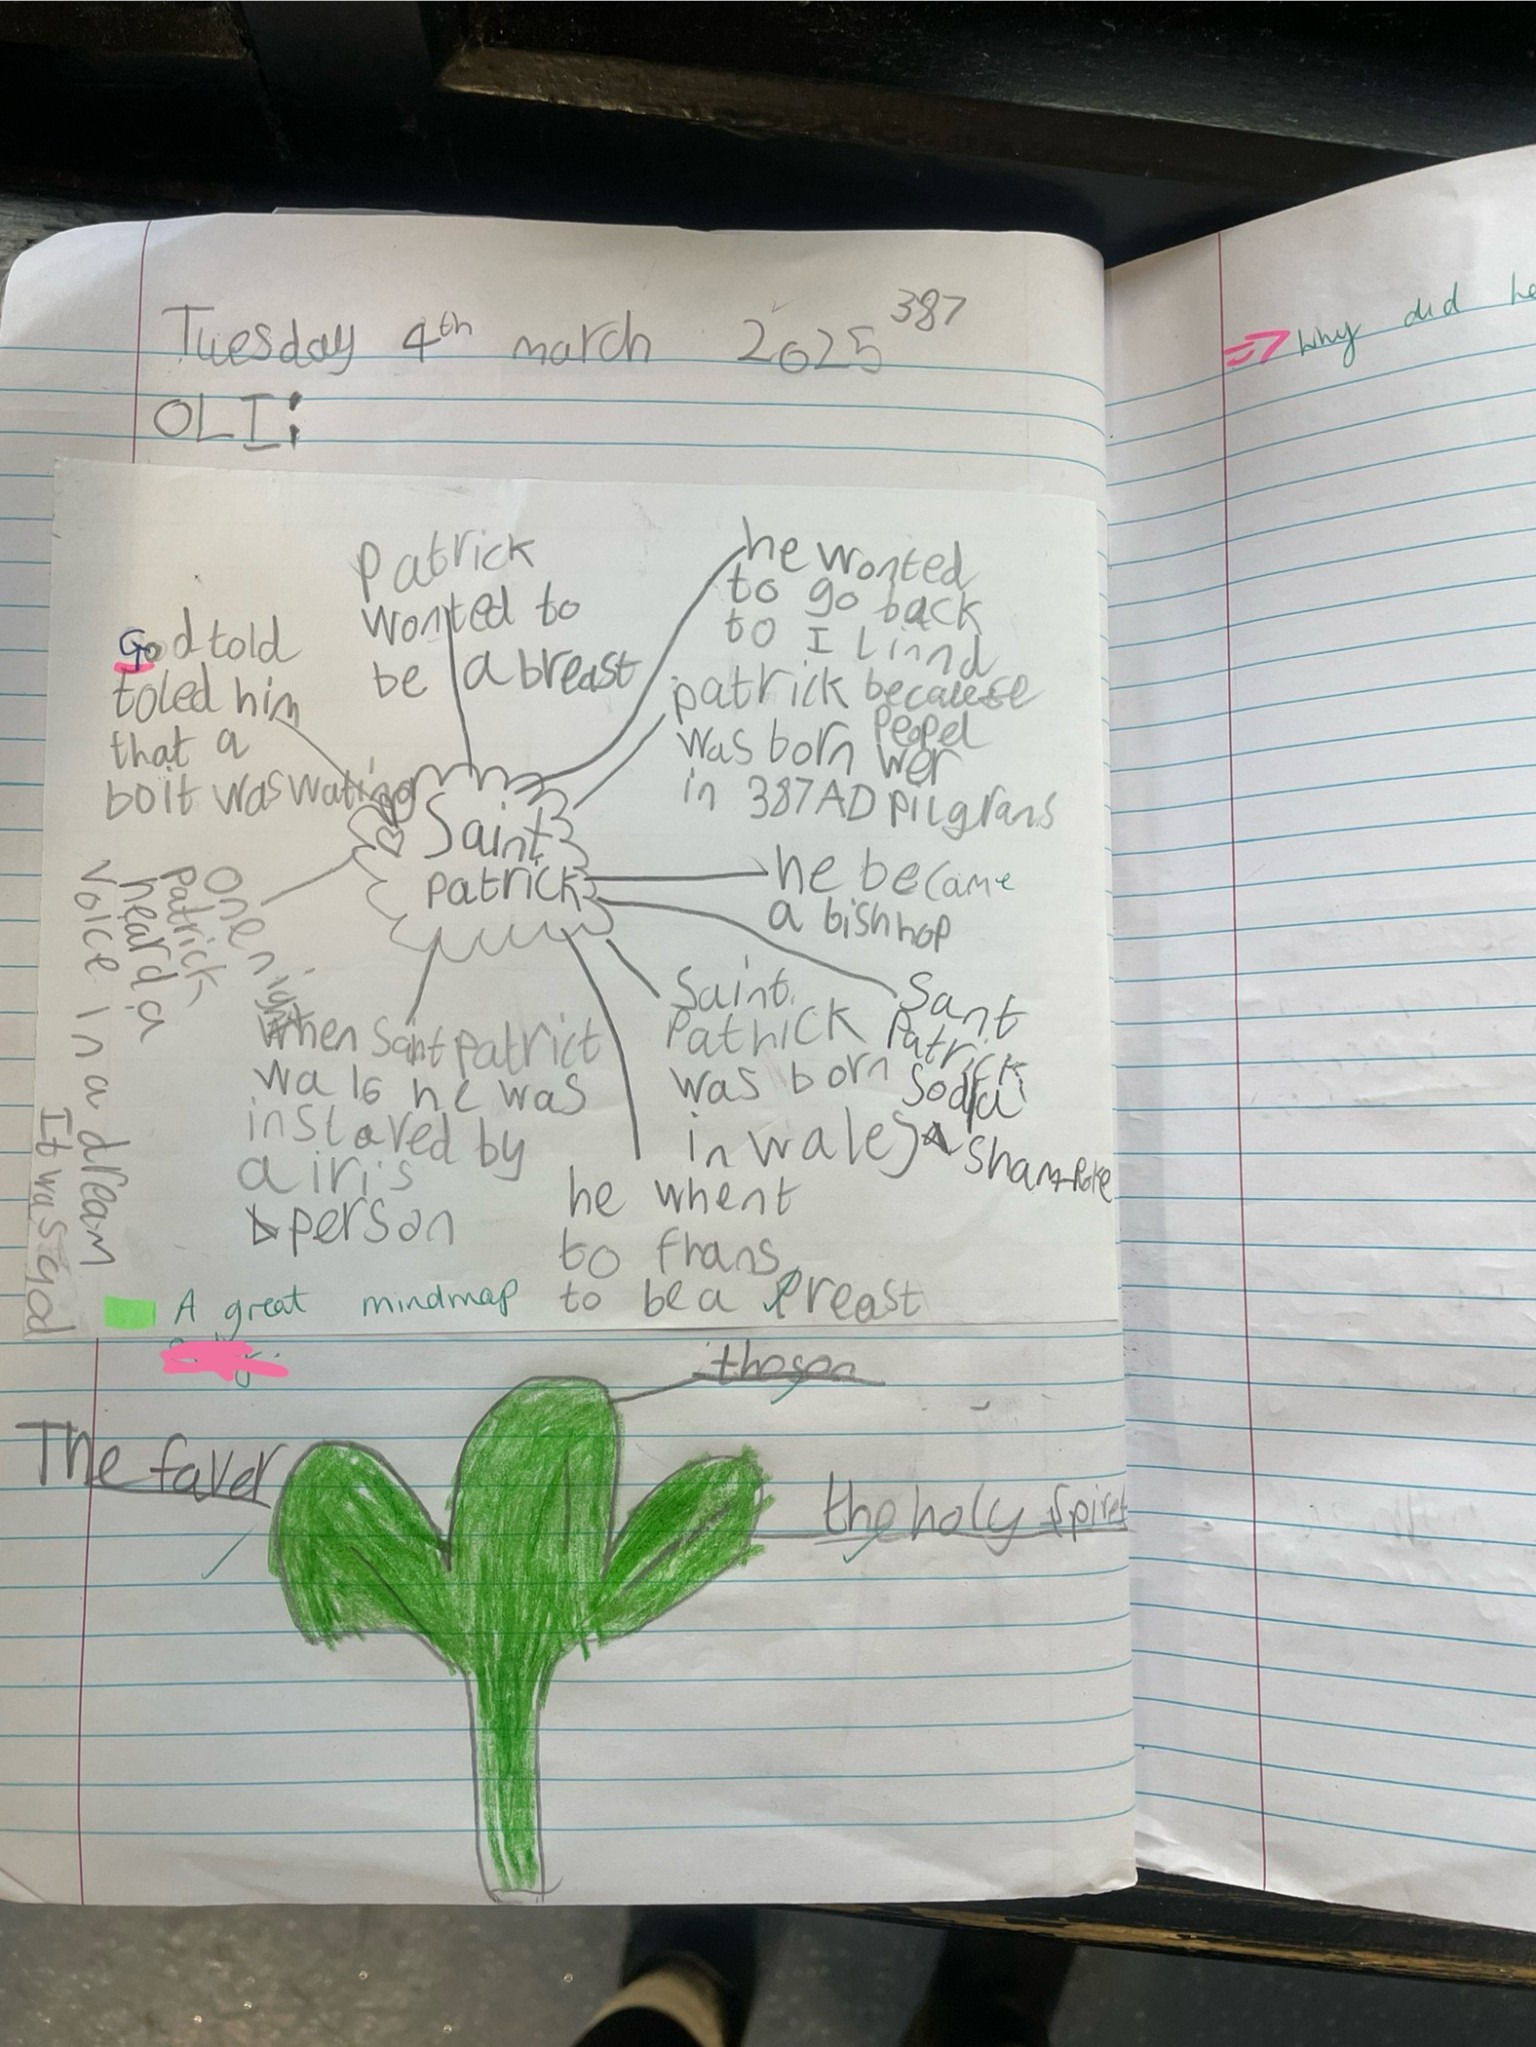 Tuesday 4th march 2025 387
OLI:
Patrick
wonted to
be a breast
he wonted
to go back
to I linnd
becauese
peopel
wer
pilgrans
God told
toled him
that a
boit was wating
patrick
was born
in 387AD
Saint
patrick
he became
a bishhop
One night
patrick
heard a
voice in a dream
It was God
When Saint patrict
wa 16 he was
inslaved by
a iris
person
he whent
to frans
to be a preast
Saint
Patrick
was born
in wales
Sant
Patrick
a
Sham-Roke
A great mindmap
the son
The faver
the holy spiret
Why did he